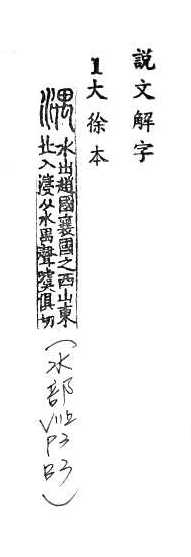 説文解字
1大徐本
湡水出趙國襄國之西山東
北入寖从水禺聲噳俱切
(水部